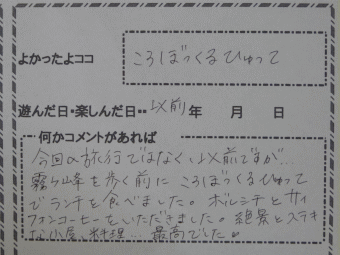 よかったよココ ころぼっくるひゅって
遊んだ日・楽しんだ日・・以前年 月 日
何かコメントがあれば
今回の旅行ではなく、以前ですが…
霧ヶ峰を歩く前に ころぼっくるひゅって
でランチを食べました。ボルシチとサイ
フォンコーヒーをいただきました。絶景とステキ
な小屋、料理… 最高でした。